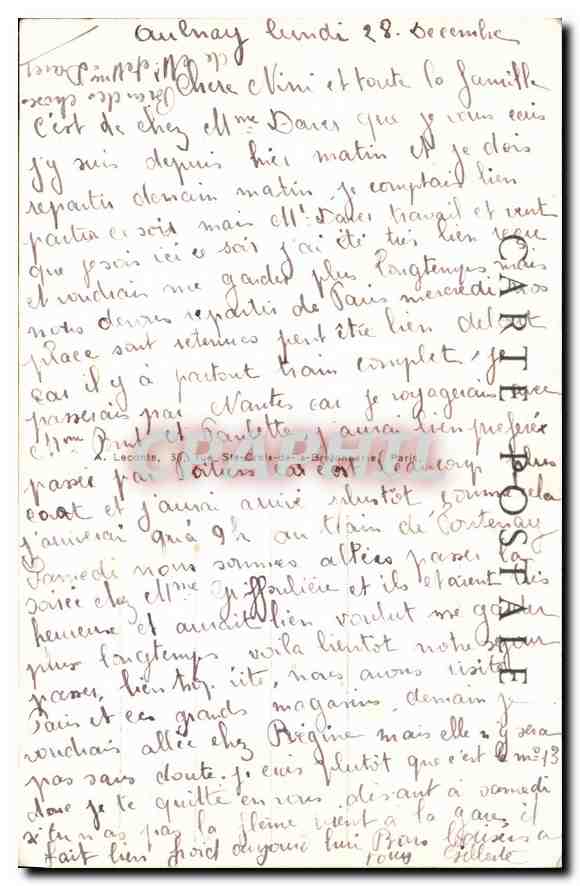 Aulnay lundi 28. Decembre
Chere Nini et toute la famille
c'est de chez Mme Dares que je vous ecris
j'y suis depuis hier matin et je dois
repartir demain matin, je comptais bien
partir ce soir mais Mr Dares travail et veut
que je sois ici ce soir j'ai été très bien reçue
et voudrais me garder plus longtemps mais
nous devons repartir de Paris mercredi nos
place sont retenues peut être bien debout
car il y à partout train complet, je
passerais par Nantes car je voyagerais avec
Mme et Paulette j'aurai bien préférée
A. Leconte, 38, rue Ste-Croix-de-la-Bretonnerie, Paris
passer par Poitiers car c'est beaucoup plus
court et j'aurai arrivé plutôt comme cela
j'arriverai qu'à 9h au train de Fontenay
Samedi nous sommes allées passer la
soirée chez Mme et ils étaient très
heureuse et aurait bien voulut me garder
plus longtemps voila bientôt notre séjour
passer, bien trop vite, nous avons visité
Paris et ces grands magasins, demain je
voudrais allée chez Régine mais elle n'y sera
pas sans doute. je crois plutôt que c'est le no 13
donc je te quitte en vous disant à samedi
si tu n'as pas la flême vient à la gare, il
fait bien froid aujourd'hui Bons Baisers a
tous
CARTE POSTALE
CARPHTL